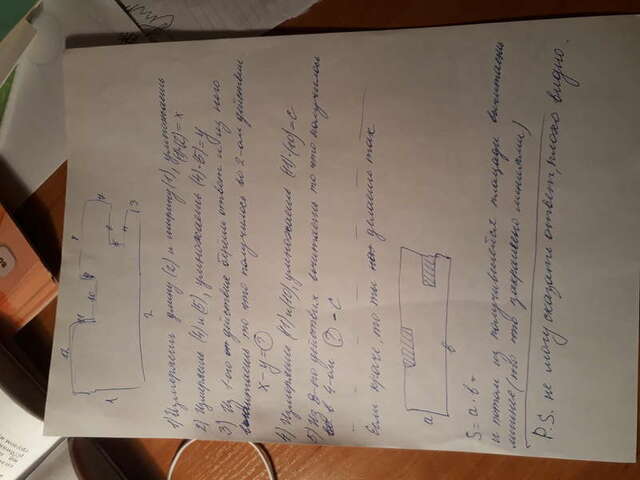 12
11
10
9
8
7
7
6
5
4
3
1
2
1) Измеряешь длину (2) и ширину (1), умножаешь
(1)·(2)=x
2) Измеряешь (4) и (5), умножаешь (4)·(5)=y
3) Из 1-ого действия берём ответ и из него
вычитаешь то что получилось во 2-ом действии
x-y=?
4) Измеряешь (11) и (10), умножаешь (11)·(10)=C
5) Из 3-ого действия вычитаешь то что получилось
в 4-ом ? -C
Если краче, то ты делаешь так
a
b
S = a · b =
и потом из получившейся площади вычитаешь
лишнее (то что закрашено линиями)
P.S. не могу сказать ответ, плохо видно.